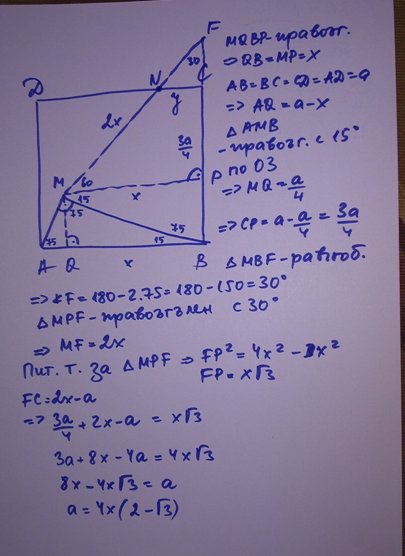 MQBP-правоъг.
⇒ QB=MP=x
AB=BC=CD=AD=a
⇒ AQ = a-x
△ AMB
-правоъг. с 15°
по ОЗ
⇒ MQ = a/4
⇒ CP = a - a/4 = 3a/4
△MBF-равноб.
F
30
D
N
C
y
2x
3a/4
M
60
15
75
x
P
75
75
15
A
Q
x
B
⇒ ∢F = 180-2.75 = 180-150=30°
△MPF-правоъгълен с 30°
⇒ MF=2x
Пит. т. за △MPF ⇒ FP² = 4x² - x²
FP = x√3
FC=2x-a
⇒ 3a/4 + 2x - a = x√3
3a + 8x - 4a = 4x√3
8x - 4x√3 = a
a = 4x(2-√3)